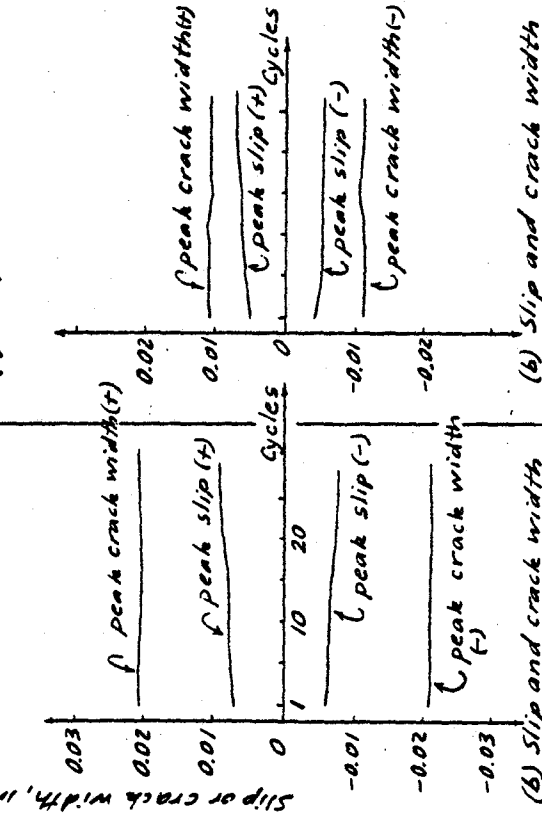 Slip or crack width, in
0.03
0.02
0.01
0
-0.01
-0.02
-0.03
peak crack width(+)
peak slip (+)
1
10
20
Cycles
peak slip (-)
peak crack width
(-)
(b) Slip and crack width
0.02
0.01
0
-0.01
-0.02
peak crack width(+)
peak slip (+)
Cycles
peak slip (-)
peak crack width(-)
(b) Slip and crack width